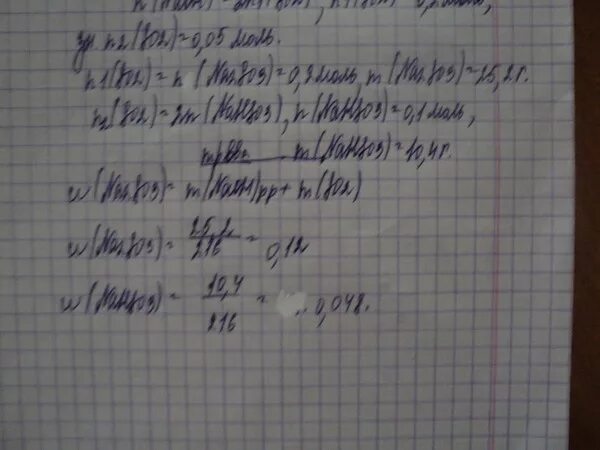 n(NaOH) = 2n1(SO2), n1(SO2) = 0,2 моль,
n2(SO2) = 0,05 моль.
n1(SO2) = n(Na2SO3) = 0,2 моль, m(Na2SO3) = 25,2 г.
n2(SO2) = 2n(NaHSO3), n(NaHSO3) = 0,1 моль,
m(NaHSO3) = 10,4 г.
w(Na2SO3) = m(NaOH)рр + m(SO2)
w(Na2SO3) = 25,2/216 = 0,12
w(NaHSO3) = 10,4/216 = 0,048.